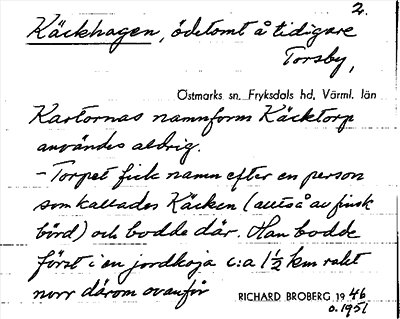 2.
Käckhagen, ödetomt å tidigare
Torsby,
Östmarks sn, Fryksdals hd, Värml. län
Kartornas namnform Käcktorp
användes aldrig.
- Torpet fick namn efter en person
som kallades Käcken (alltså av finsk
börd) och bodde där. Han bodde
först i en jordkoja c:a 1½ km rakt
norr därom ovanför
RICHARD BROBERG 1946
o. 1951